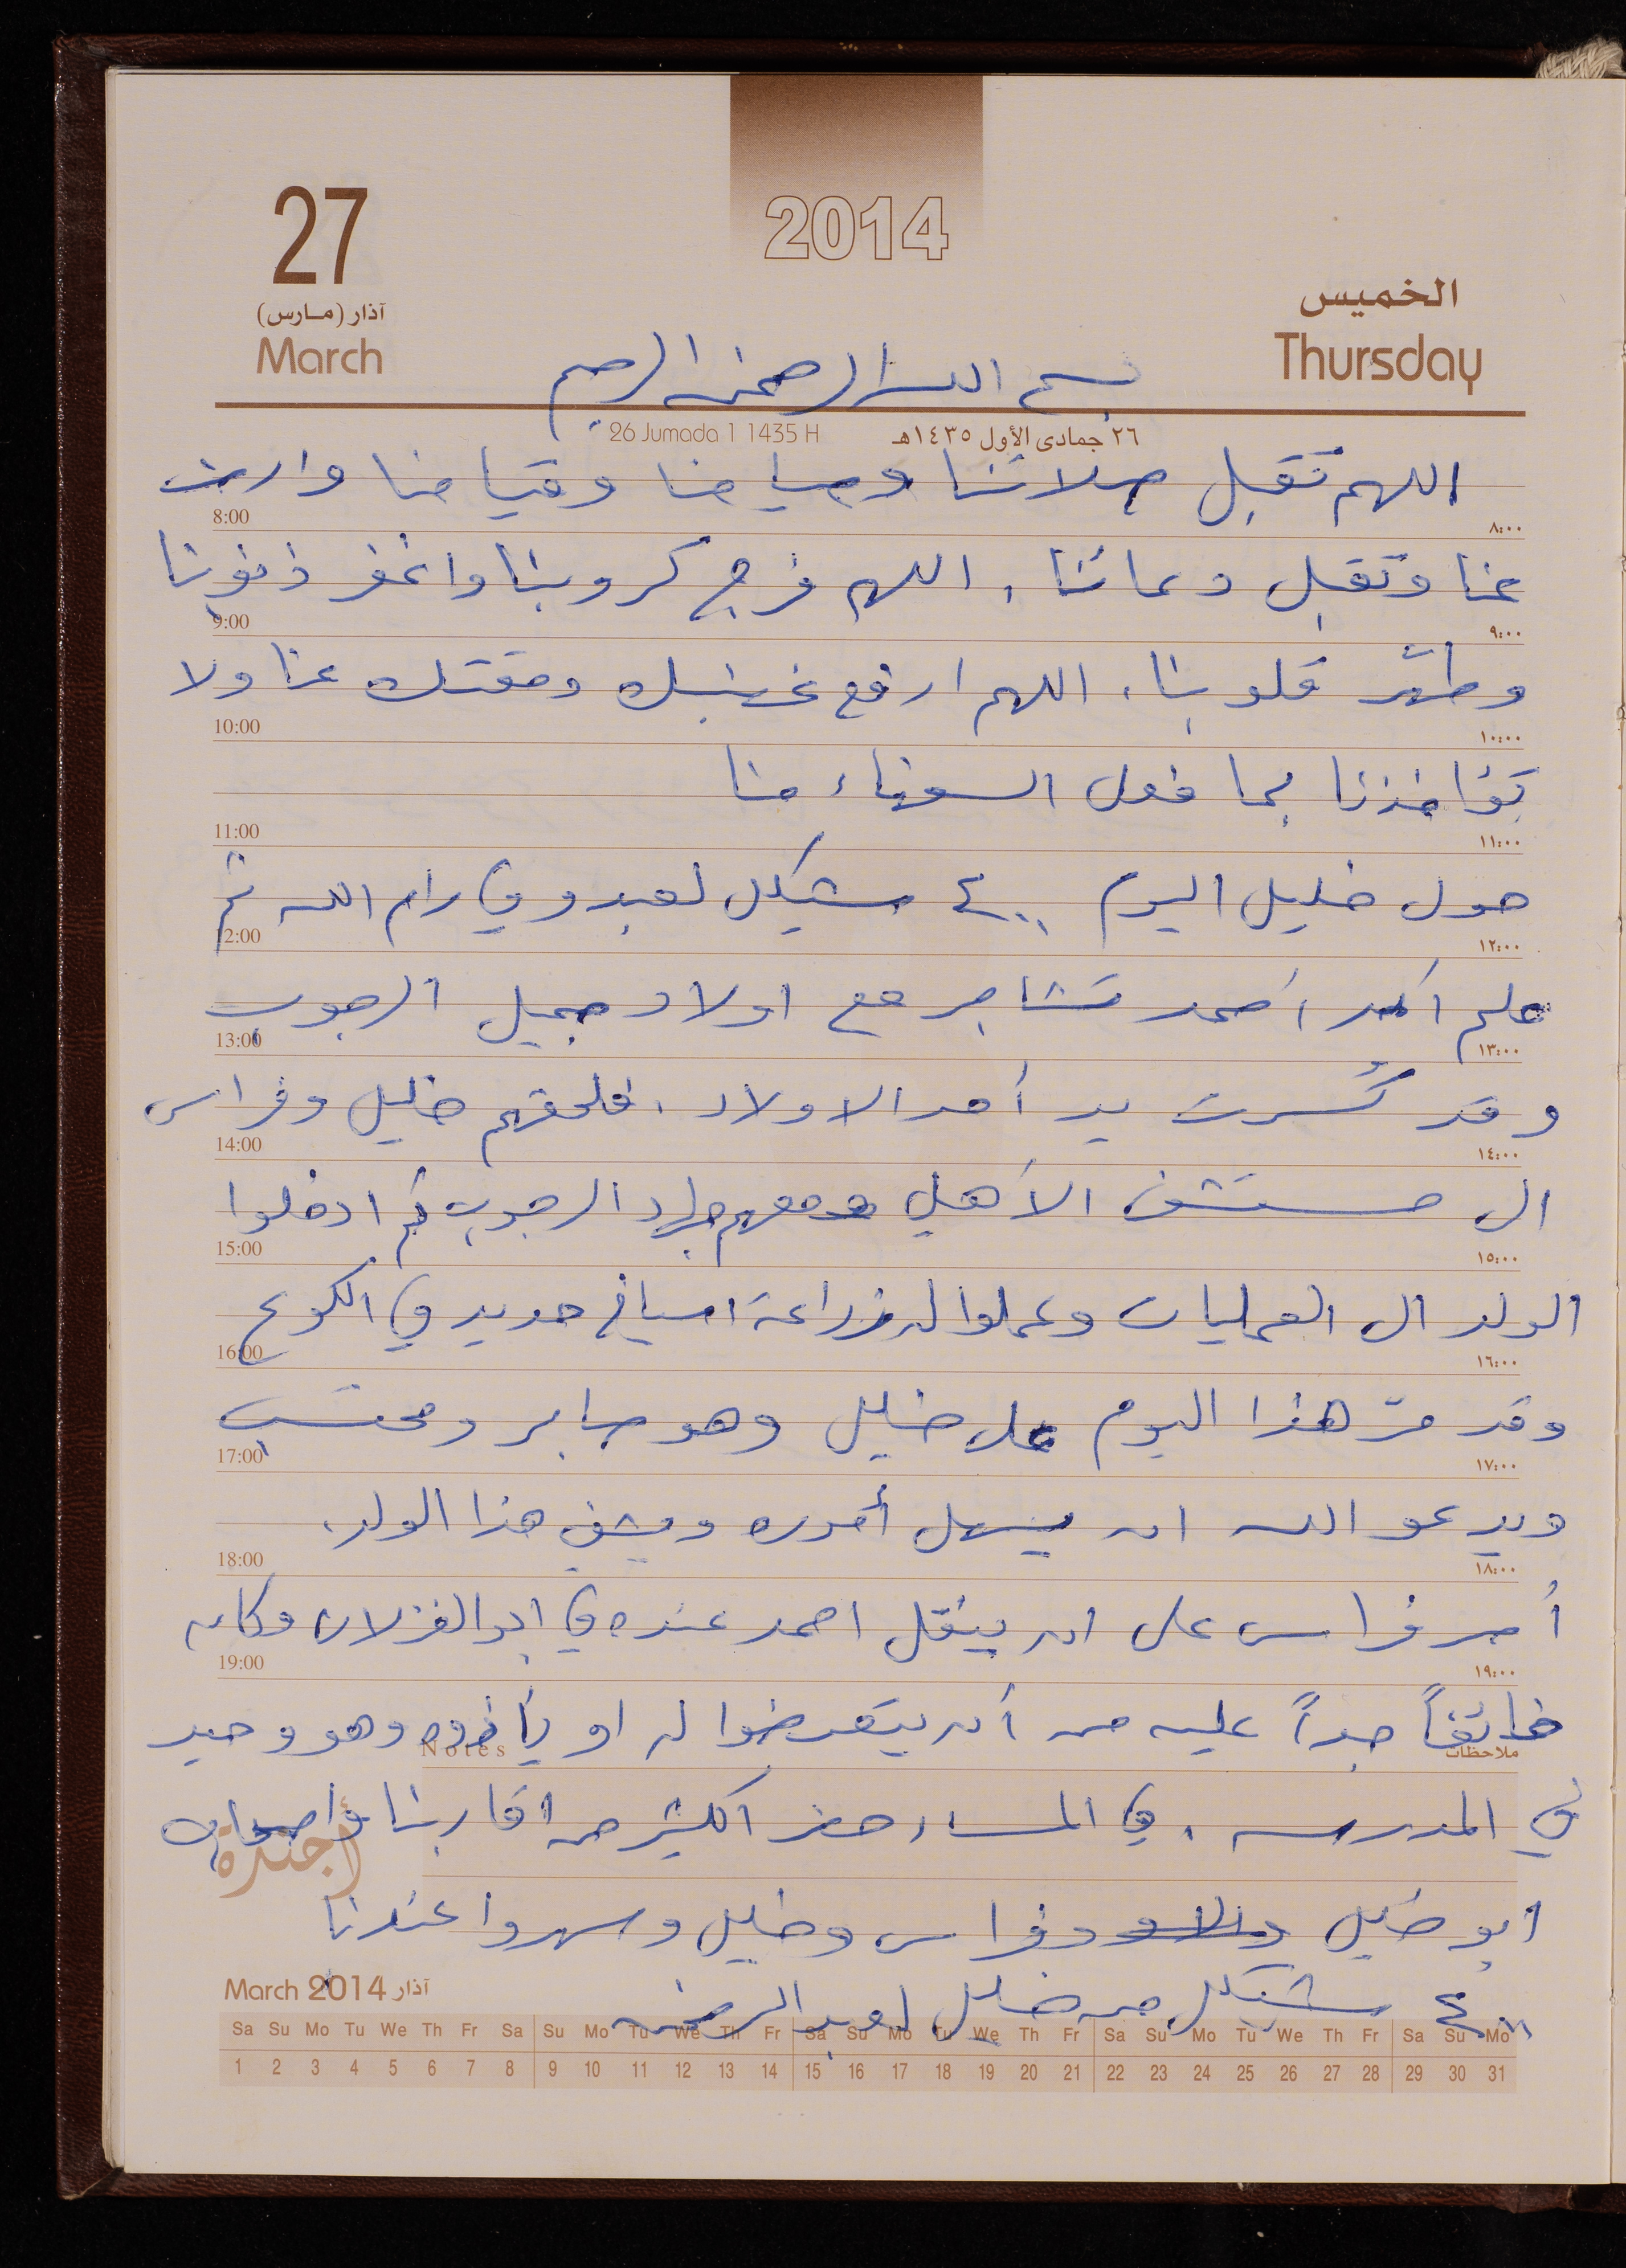 27
2014
آذار (مارس)
March
الخميس
Thursday
بسم الله الرحمن الرحيم
26 Jumada 1 1435 H
٢٦ جمادى الأول ١٤٣٥هـ
اللهم تقبل صلاتنا وصيامنا وقيامنا وارض
8:00 ٨:٠٠
عنا وتقبل دعائنا، اللهم فرج كروبنا واغفر ذنوبنا
9:00 ٩:٠٠
وطهّر قلوبنا، اللهم ارفع غضبك ومقتك عنا ولا
10:00 ١٠:٠٠
تؤاخذنا بما فعل السفهاء منا
11:00 ١١:٠٠
حول خليل اليوم ٤٠٠ شيكل لعبد في رام الله ثم
12:00 ١٢:٠٠
علم أن أحمد تشاجر مع اولاد جميل الرجوب
13:00 ١٣:٠٠
وقد كُسرت يد أحد الاولاد، فلحقهم خليل وفراس
14:00 ١٤:٠٠
الى مستشفى الأهلي ومعهم جهاد الرجوب ثم ادخلوا
15:00 ١٥:٠٠
الولد الى العمليات وعملوا له زراعة اسياخ حديد في الكوع
16:00 ١٦:٠٠
وقد مرّ هذا اليوم على خليل وهو صابر ومحتسب
17:00 ١٧:٠٠
ويدعو الله ان يسهل أموره ويشفي هذا الولد.
18:00 ١٨:٠٠
أصر فراس على ان ينقل احمد عنده في ابو الغزلان وكان
19:00 ١٩:٠٠
خائفاً جداً عليه من أن يتعرضوا له او يأذوه وهو وحيد
Notes ملاحظات
في المدرسه، في المساء حضر اكثر من اقاربنا واصحاب
أجندة
ابو خليل وفراس وخليل وسهروا عندنا
March 2014 آذار
٤٠٠ شيكل من خليل لعبد الرحمن
Sa Su Mo Tu We Th Fr Sa Su Mo Tu We Th Fr Sa Su Mo Tu We Th Fr Sa Su Mo Tu We Th Fr Sa Su Mo
1 2 3 4 5 6 7 8 9 10 11 12 13 14 15 16 17 18 19 20 21 22 23 24 25 26 27 28 29 30 31